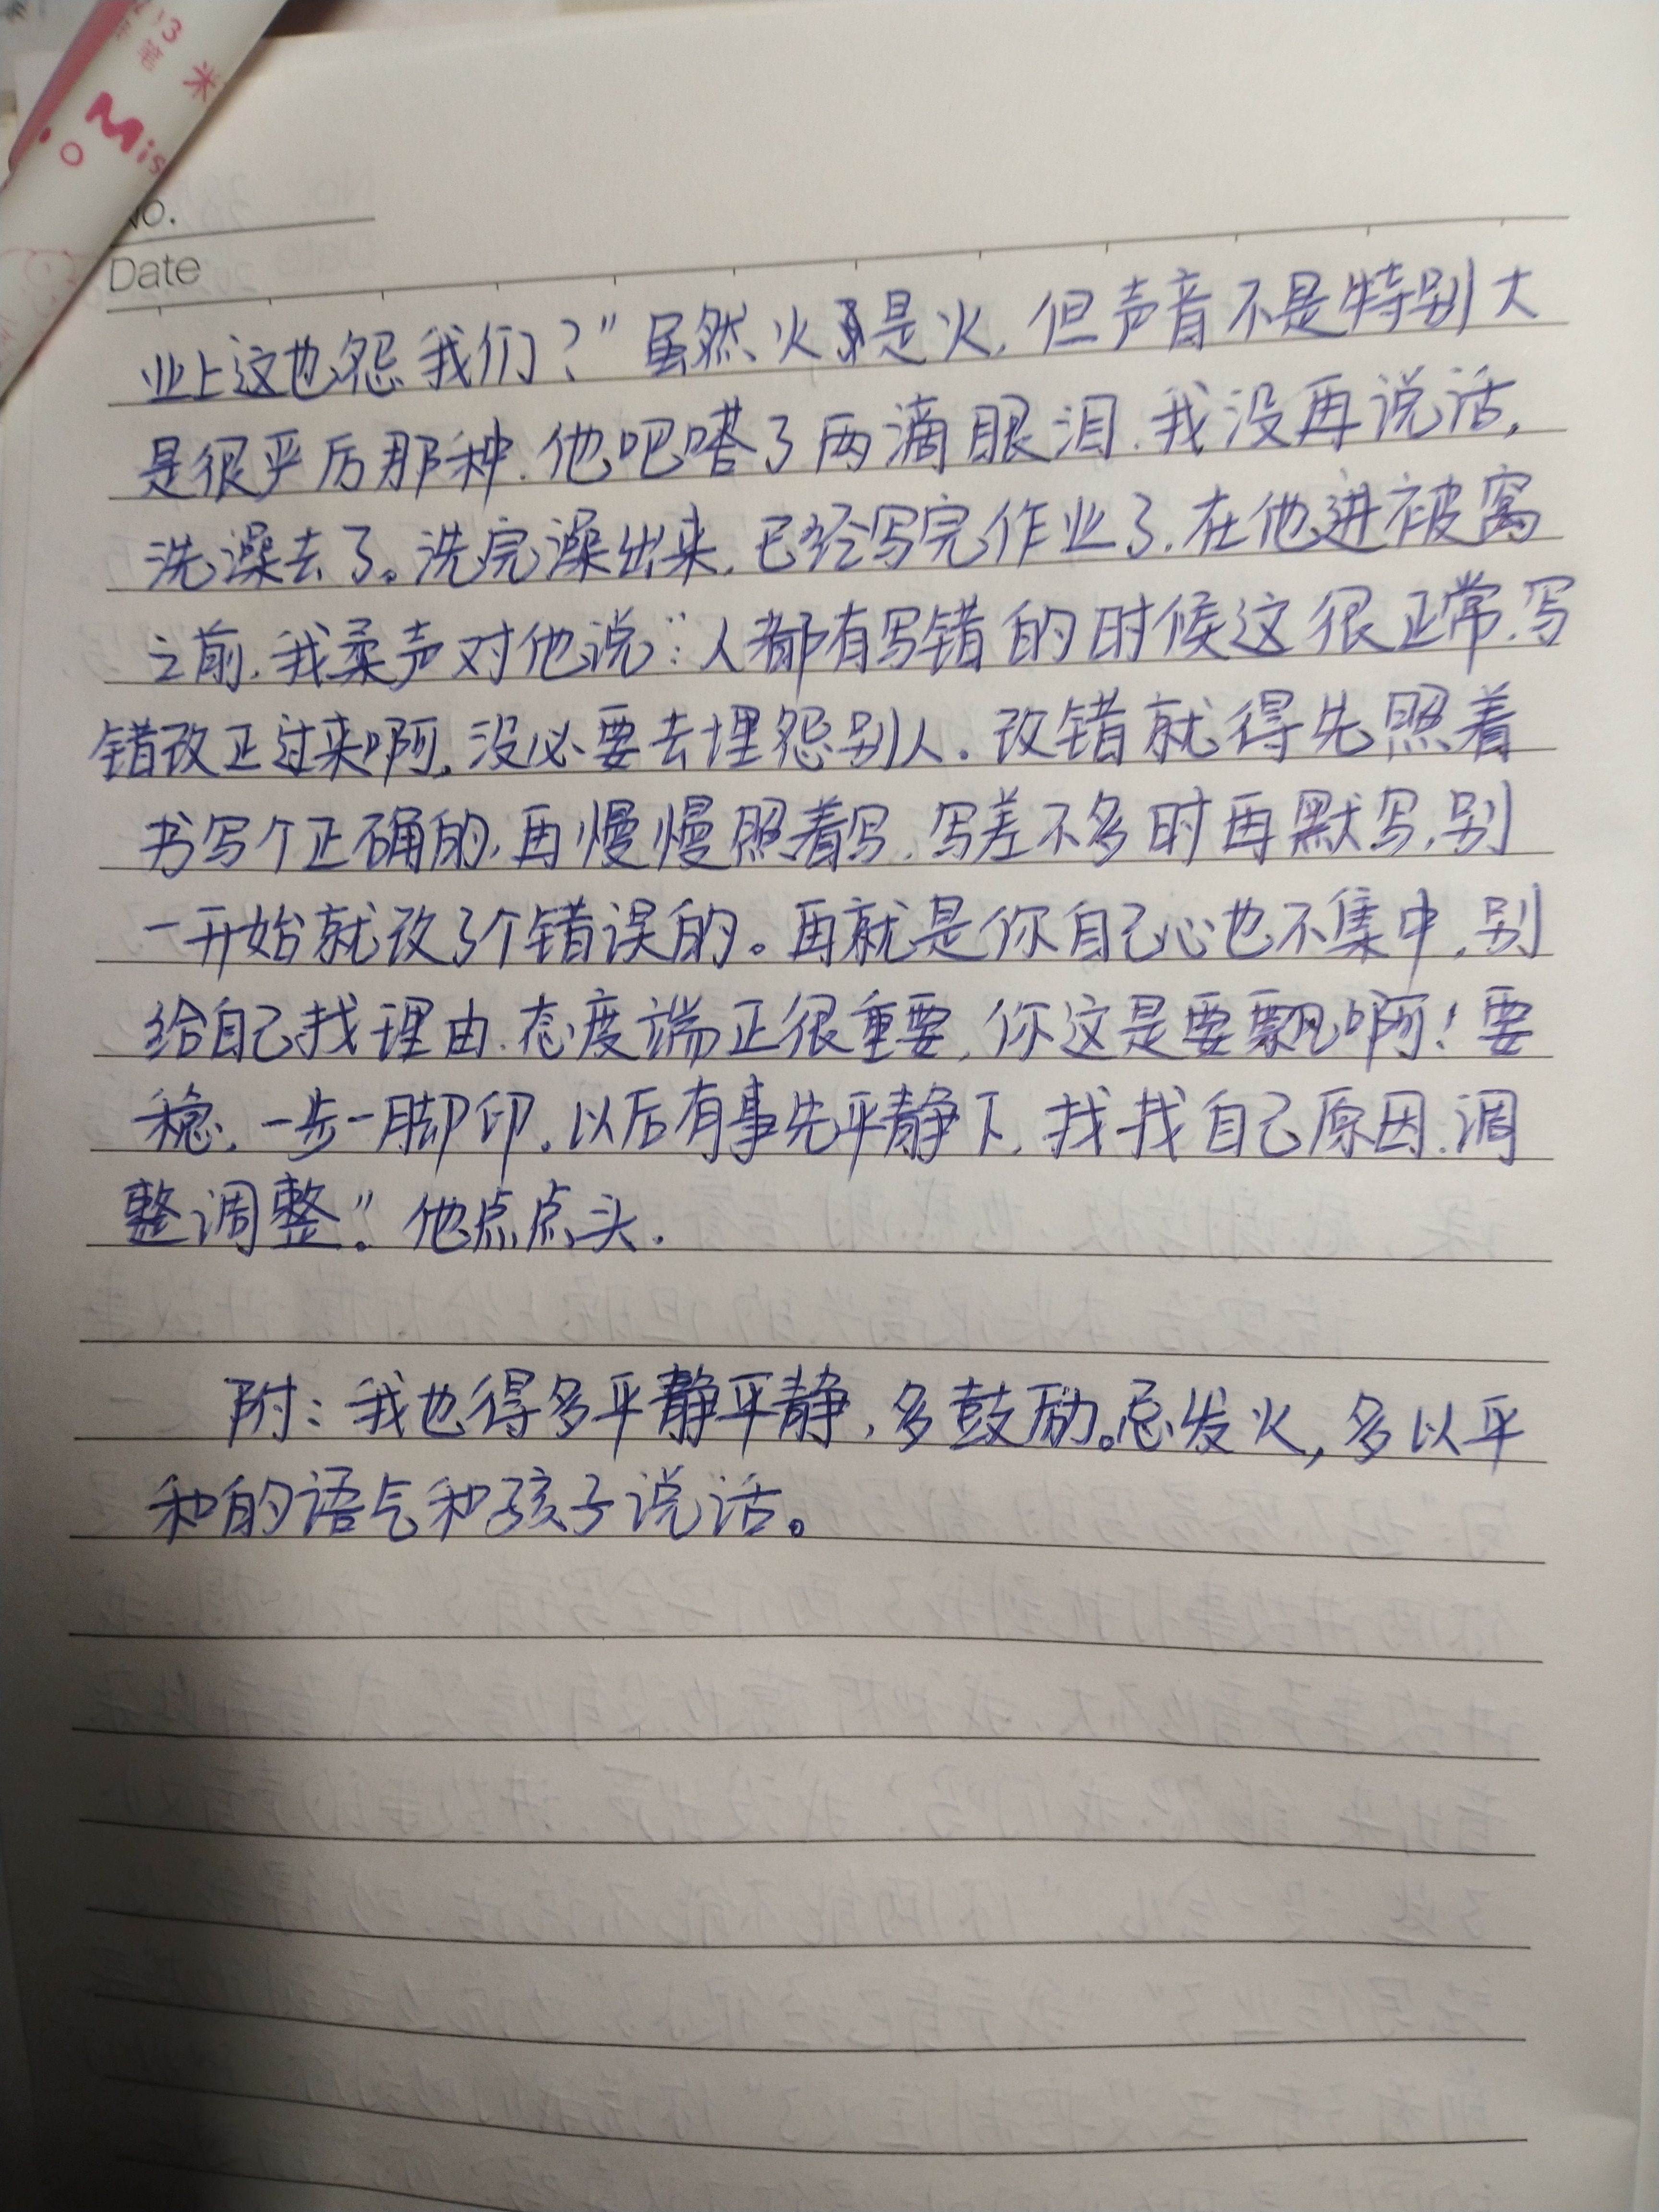 2.13米
笔
Mis
No.
Date
业上这也怨我们？”虽然火是火，但声音不是特别大
是很严厉那种.他吧嗒了两滴眼泪.我没再说话，
洗澡去了。洗完澡出来，已经写完作业了.在他进被窝
之前，我柔声对他说：“人都有写错的时候这很正常，写
错改正过来啊，没必要去埋怨别人.改错就得先照着
书写个正确的，再慢慢照着写.写差不多时再默写，别
一开始就改了个错误的。再就是你自己心也不集中，别
给自己找理由.态度端正很重要，你这是要飘啊！要
稳，一步一脚印，以后有事先平静下，找找自己原因.调
整调整”。他点点头.
附：我也得多平静平静，多鼓励。忌发火，多以平
和的语气和孩子说话。